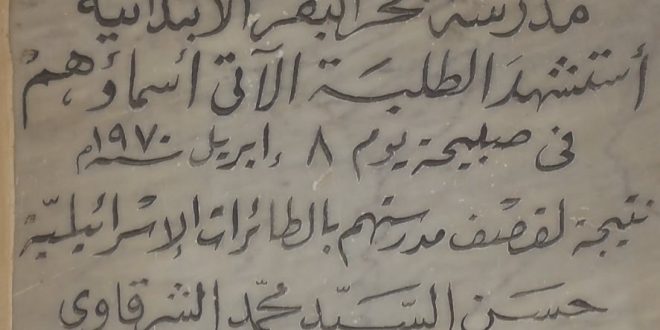 مدرسة بحر البقر الابتدائية
أستشهدَ الطلبَة الآتى أسماؤهمْ
فى صبيحة يوم ٨ إبريل سنة ١٩٧٠م
نتيجة لقصْف مدرستهم بالطائرات الإسْرائيليّة
حسَن السَيّد محمّد الشرقاوى